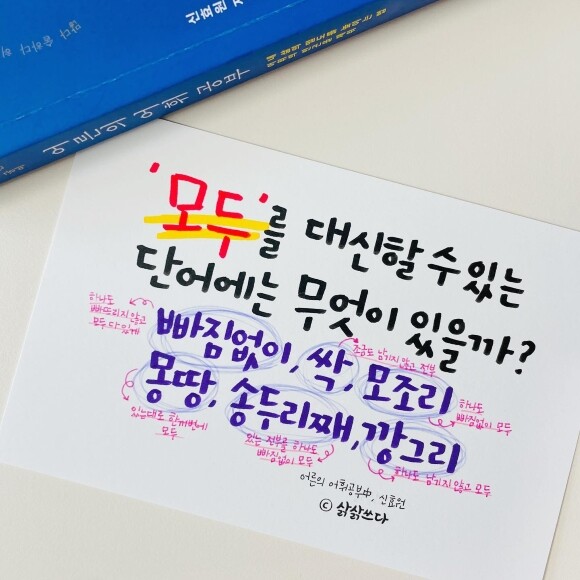 신효원 지
어른의 어휘 공부
'모두'를 대신할 수 있는
단어에는 무엇이 있을까?
하나도
빠뜨리지 않고
모두 다 있게
빠짐없이, 싹, 모조리
조금도 남기지 않고 전부
하나도
빠짐없이 모두
몽땅, 송두리째, 깡그리
있는대로 한꺼번에
모두
있는 전부를 하나도
빠짐없이 모두
하나도 남기지 않고 모두
어른의 어휘공부中, 신효원
ⓒ 삵삵쓰다